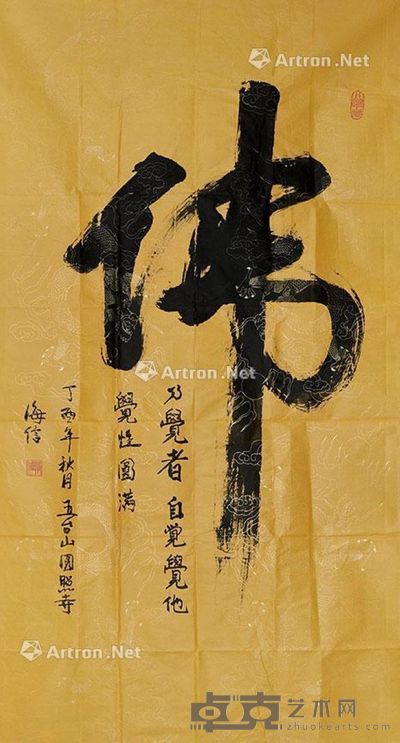 佛
乃覺者 自觉覺他
覺性圓满
丁酉年秋月 五台山圆照寺
海信
Artron.Net
Artron.Net
Artron.Net
Artron.Net
Artron.Net
卓克艺术网
zhuokearts.com